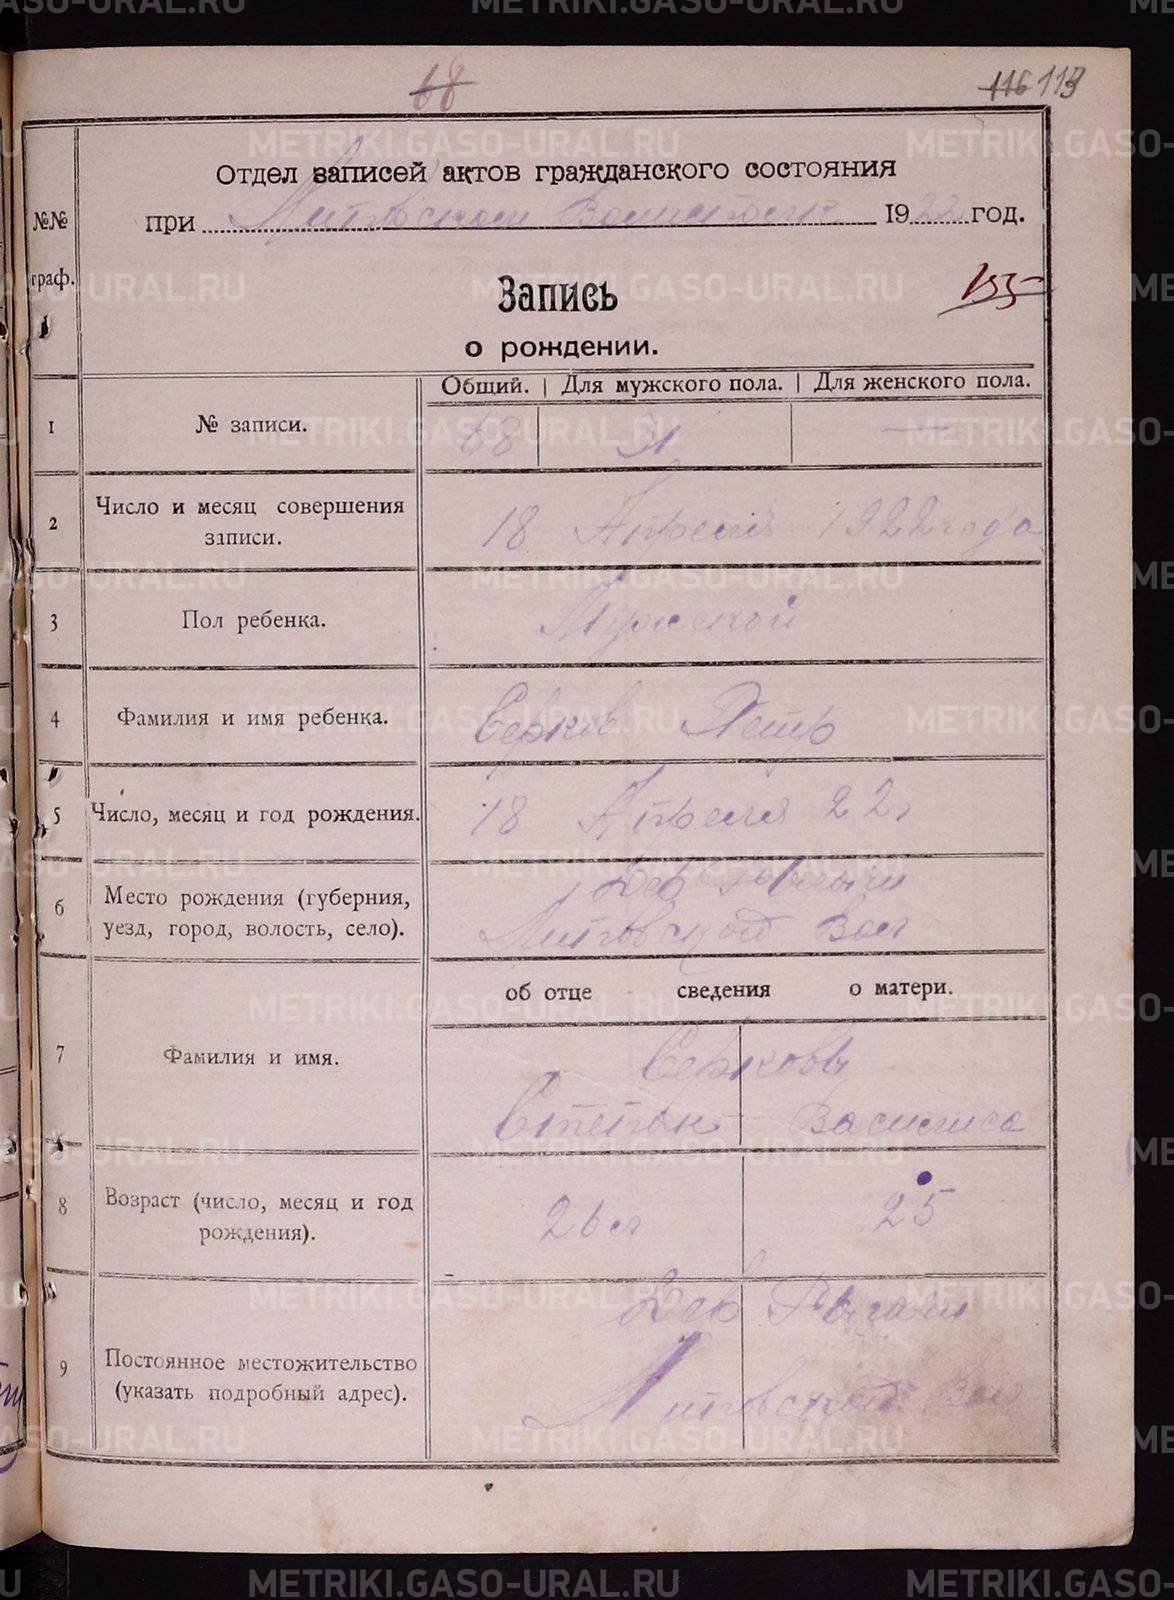 METRIKI.GASO-URAL.RU
68
116 113
Отдел записей актов гражданского состояния
при Литовском 1922 год.
№№ граф.
155
Запись
о рождении.
Общий. | Для мужского пола. | Для женского пола.
1 № записи. 68 31 —
2 Число и месяц совершения записи. 18 Апреля 1922 года
3 Пол ребенка. Мужской
4 Фамилия и имя ребенка. Серков Петр
5 Число, месяц и год рождения. 18 Апреля 22 г
6 Место рождения (губерния, уезд, город, волость, село). Дер
Литовской Вол
об отце сведения о матери.
7 Фамилия и имя. Серковы
Степан Василиса
8 Возраст (число, месяц и год рождения). 26 л 25
9 Постоянное местожительство (указать подробный адрес). Дер
Литовской Вол